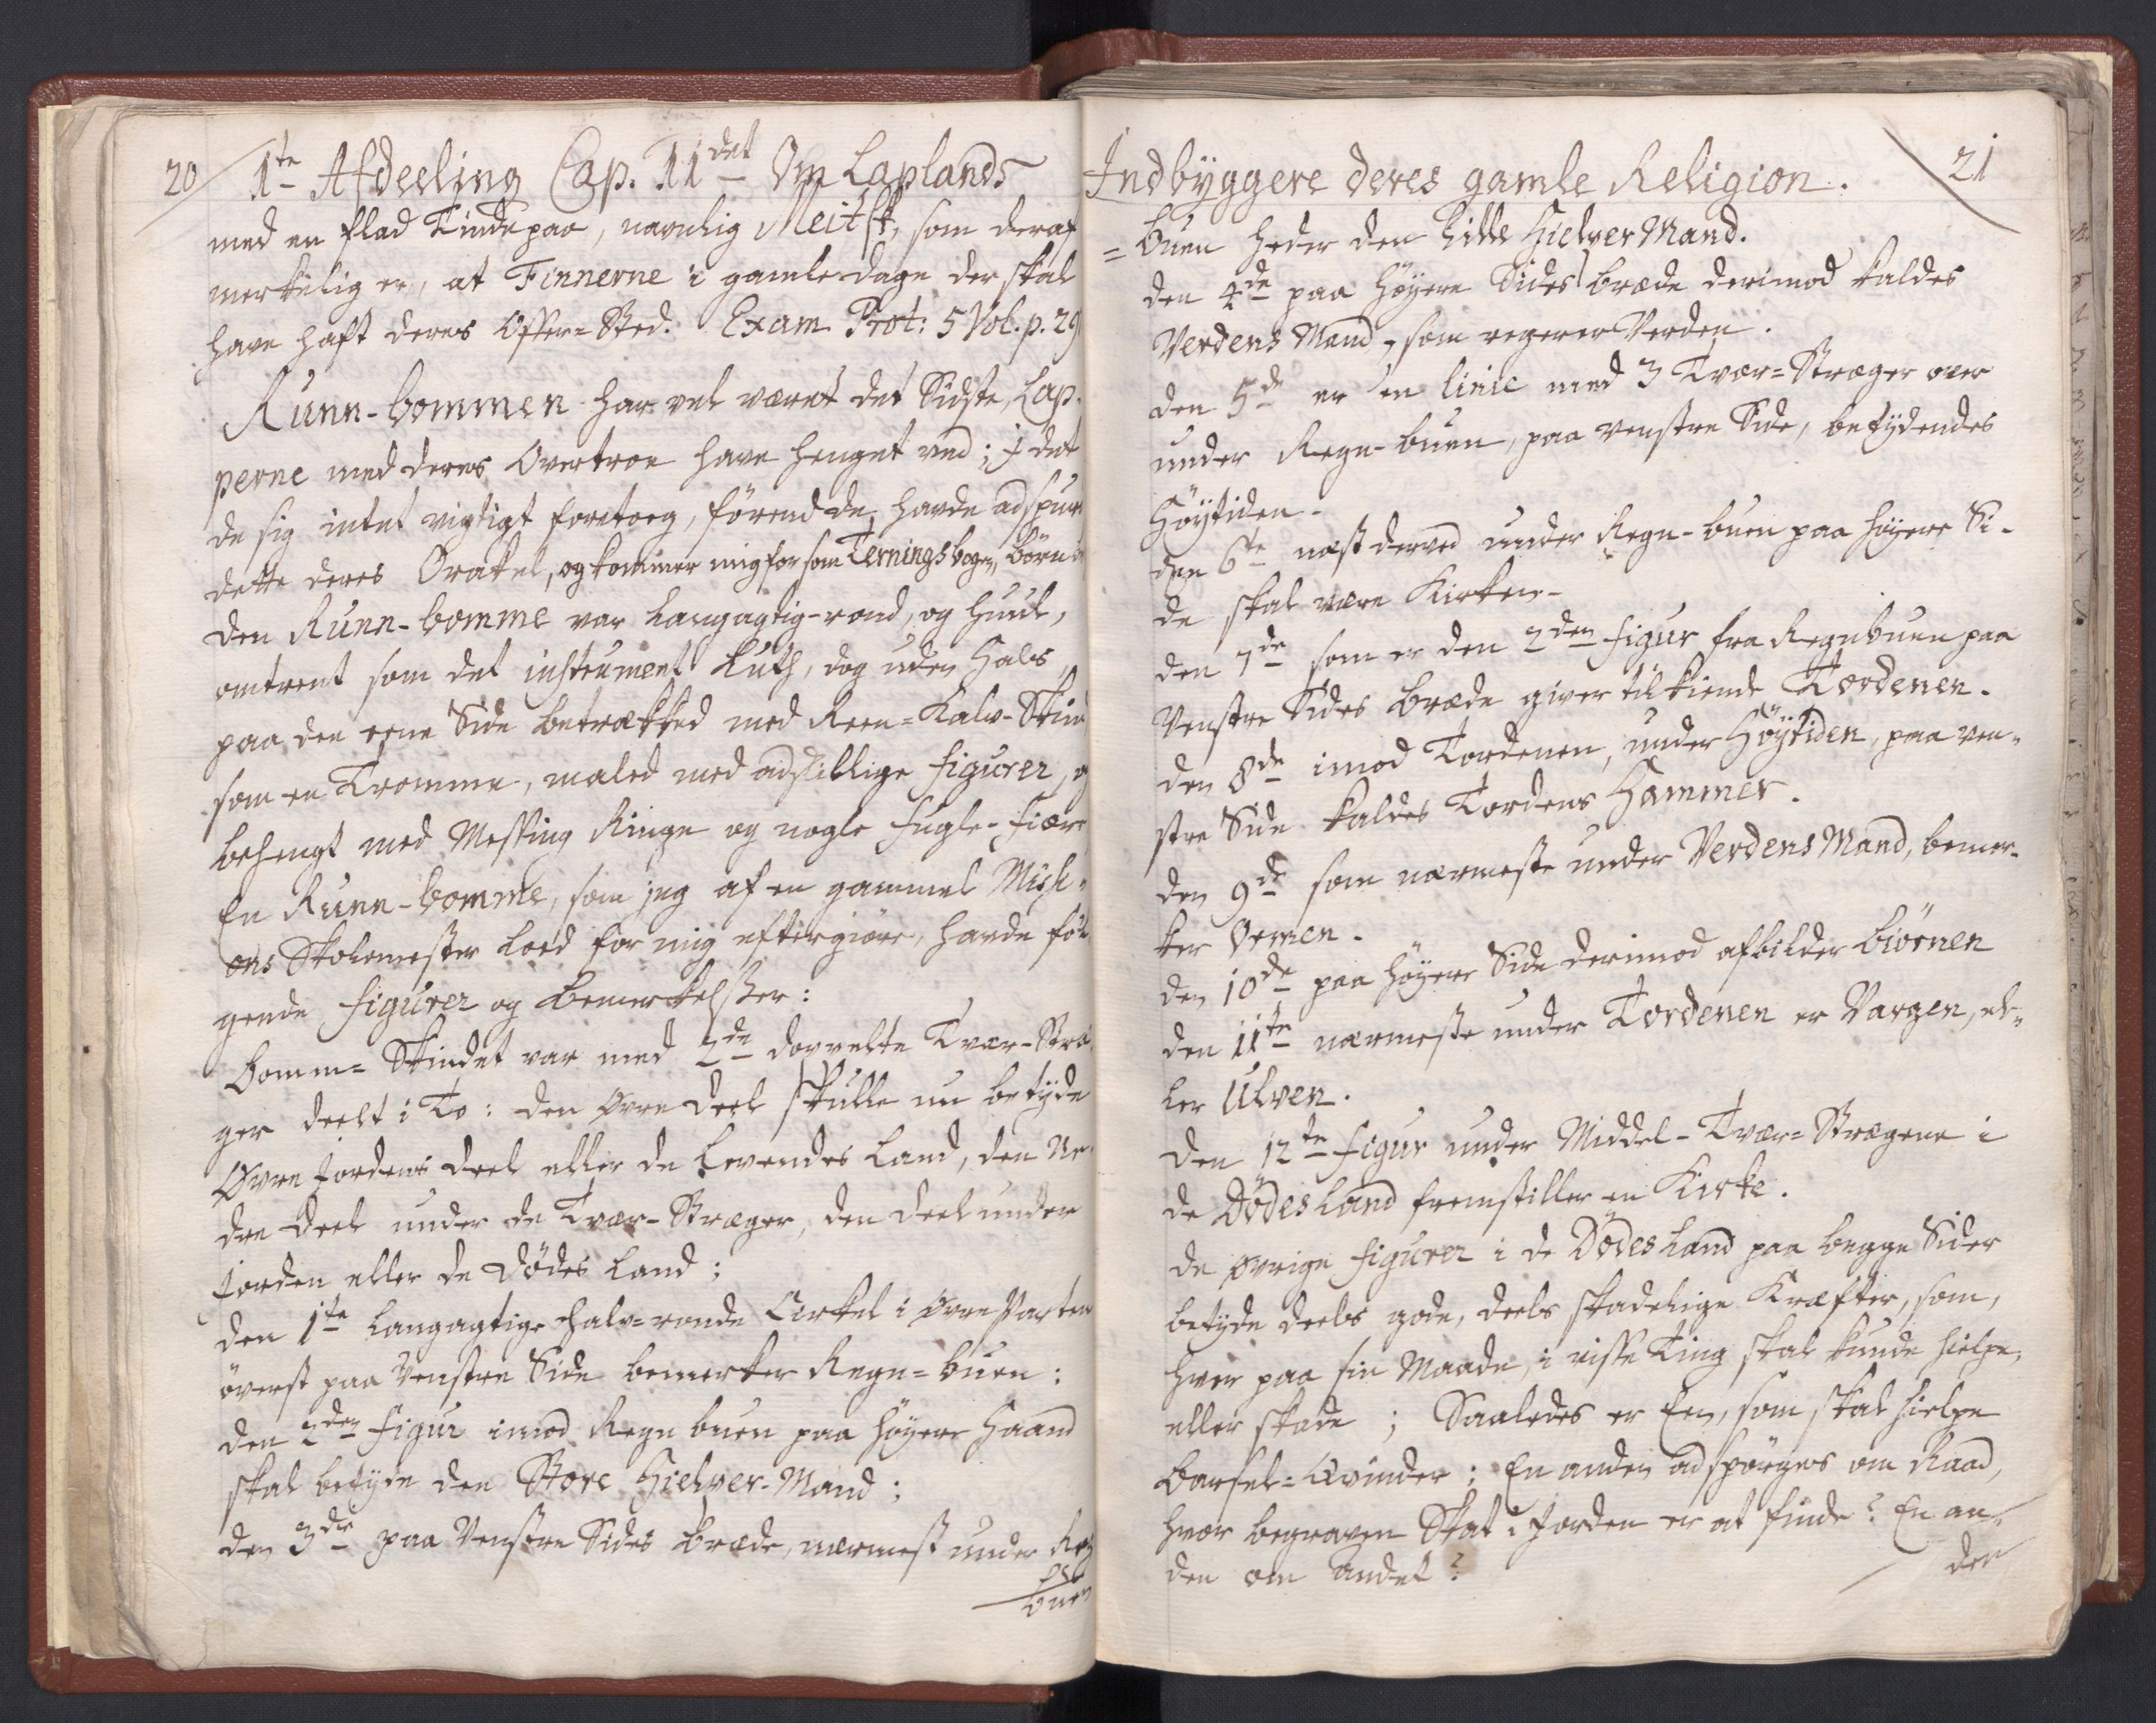 20
1te Afdeeling Cap. 11det Om Laplands
med en flad Tinde paa, navnlig Meitsk, som deraf
merkelig er, at Finnerne i gamle dage der skal
have haft deres Offer=Sted. Exam. Prot: 5 Vol. p. 29
Runn-bommen har vel været det Sidste, Lap-
perne med deres Overtroe have henget ved; i det
de sig intet vigtigt foretoeg, förend de havde adspurt
dette deres Orakel, og kommer mig for som Ternings bogen, börn
den Runn-bomme var langagtig-rond, og huul,
omtrent som det instrument Luth, dog uden Hals,
paa den eene Side betrækked med Reen=Kalv-Skind
som en Tromme, maled med adskillige figurer, og
behengt med Messing Ringe og nogle fugle-fiære
En Runn-bomme, som jeg af en gammel Missi-
ons Skolemester loed for mig eftergiöre, havde föl-
gende figurer og bemerkelsser:
Bomm= Skindet var med 2de dovvelte Tvær-Stræ-
ger deelt i To: den övre deel skulle nu betyde
Övre Jordens deel eller de Levendes Land, den Ne-
dre deel under de Tvær-Stræger, den deel under
Jorden eller de Dödes Land;
den 1te langagtige halv=ronde Cirkel i övre Parten
överst paa Venstre Side bemerker Regn=buen:
den 2den figur imod Regn buen paa höyere Haand
skal betyde den Store Hielper-Mand;
den 3de paa Venstre Sides bræde, nærmest under Regn
buen
Indbyggere deres gamle Religion.
21
=buen heder den lille Hielper Mand.
den 4de paa höyere Sides bræde derimod kaldes
Verdens Mand, som regerer Verden.
den 5de er en linie med 3 Tvær=Stræger over
under Regn-buen, paa venstre Side, betydendes
Höytiden.
den 6te næst derved under Regn-buen paa höyere Si-
de skal være Kirken.
den 7de som er den 2den figur fra Regnbuen paa
Venstre Sides bræde giver til kiende Tordenen.
den 8de imod Tordenen, under Höytiden, paa ven-
stre Side kaldes Tordens Hammer.
den 9de som nærmeste under Verdens Mand, bemer-
ker Ormen.
den 10de paa höyere Side derimod afbilder biörnen
den 11te nærmeste under Tordenen er Vargen, el-
ler Ulven.
den 12te figur under Middel-Tvær=Strægene i
de Dödes Land fremstiller en Kirke.
de övrige figurer i de Dödes Land paa begge Sider
betyde deels gode, deels skadelige Kræfter, som,
hver paa sin Maade, i visse Ting skal kunde hielpe,
eller skade; Saaledes er Een, som skal hielpe
Barsel=Qvinder; En anden adspörges om Raad,
hvor begraven Skat i Jorden er at finde? En an-
den om andet?
der